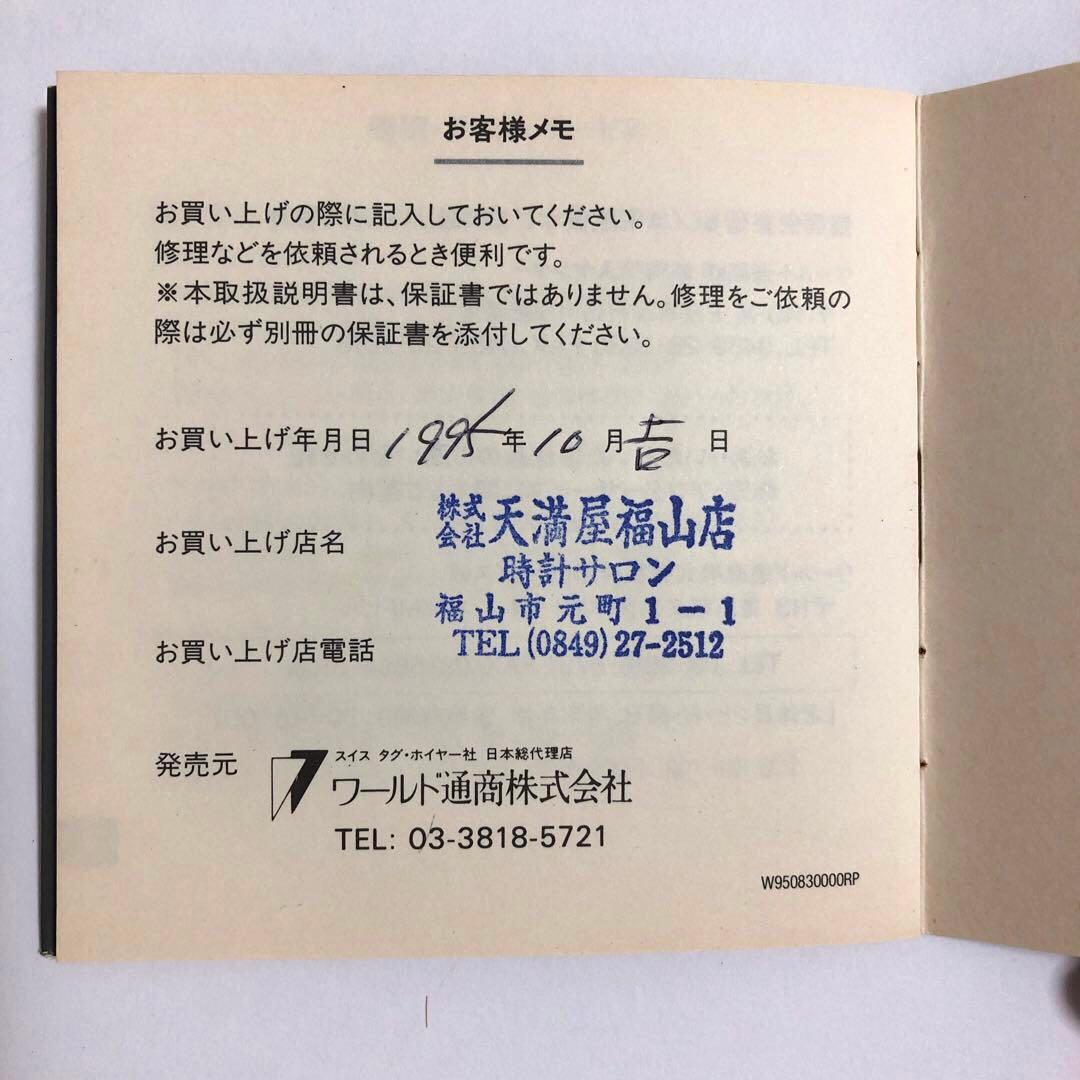 お客様メモ
お買い上げの際に記入しておいてください。
修理などを依頼されるとき便利です。
※本取扱説明書は、保証書ではありません。修理をご依頼の
際は必ず別冊の保証書を添付してください。
お買い上げ年月日 1995年10月吉日
お買い上げ店名
株式会社天満屋福山店
時計サロン
福山市元町1-1
お買い上げ店電話
TEL(0849)27-2512
発売元
スイス タグ・ホイヤー社 日本総代理店
ワールド通商株式会社
TEL: 03-3818-5721
W950830000RP